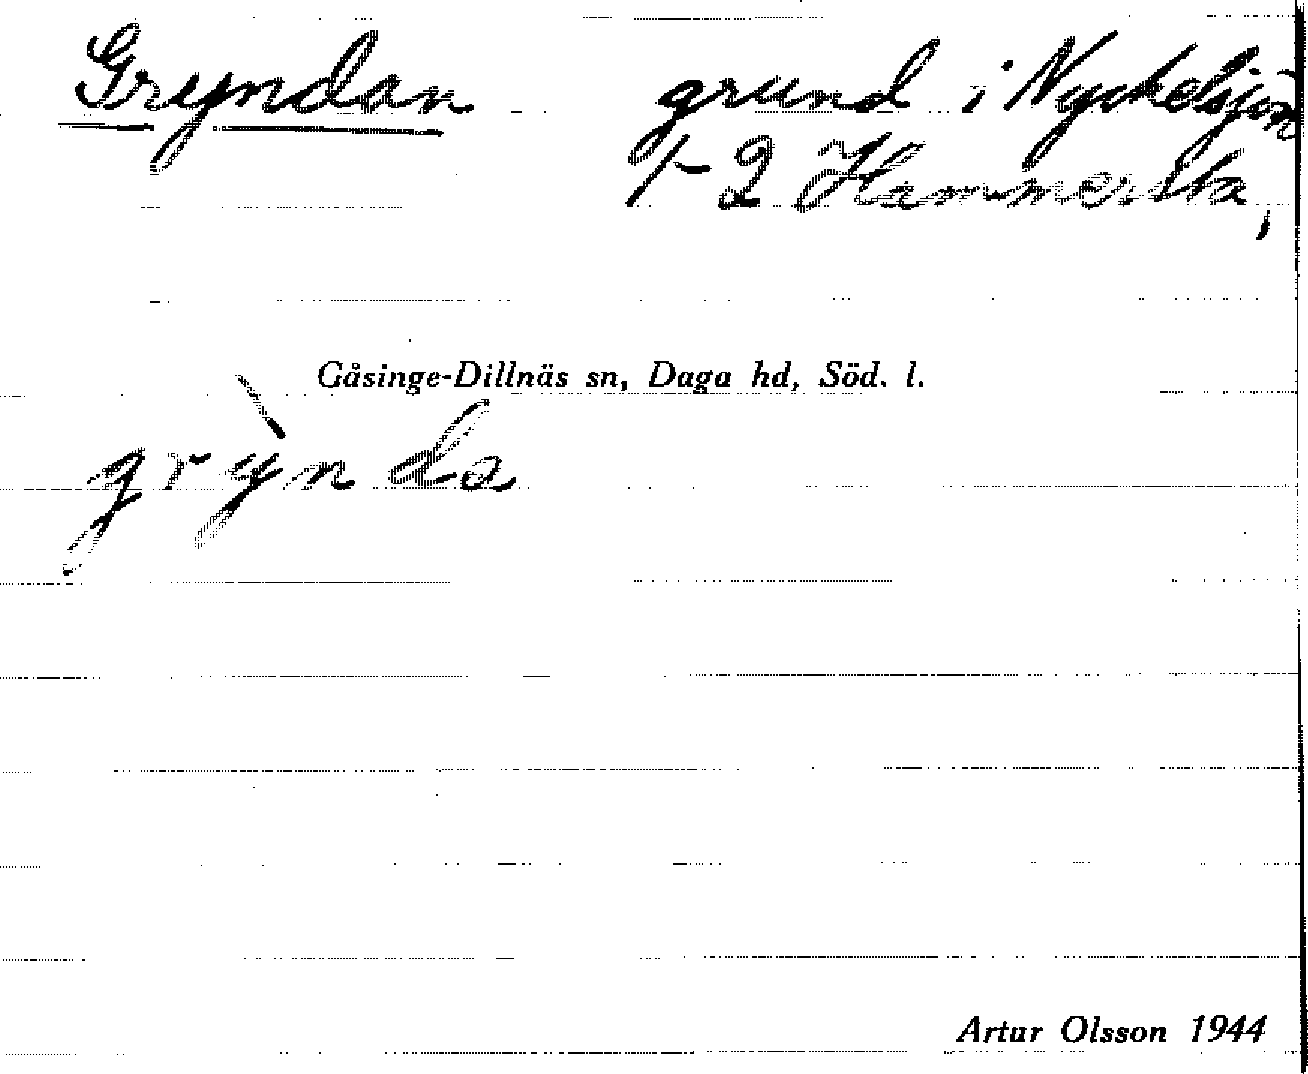 Gryndan grund i Nyckelsjön
1-2 Hammersta,
Gåsinge-Dillnäs sn, Daga hd, Söd. l.
grỳnda
Artur Olsson 1944